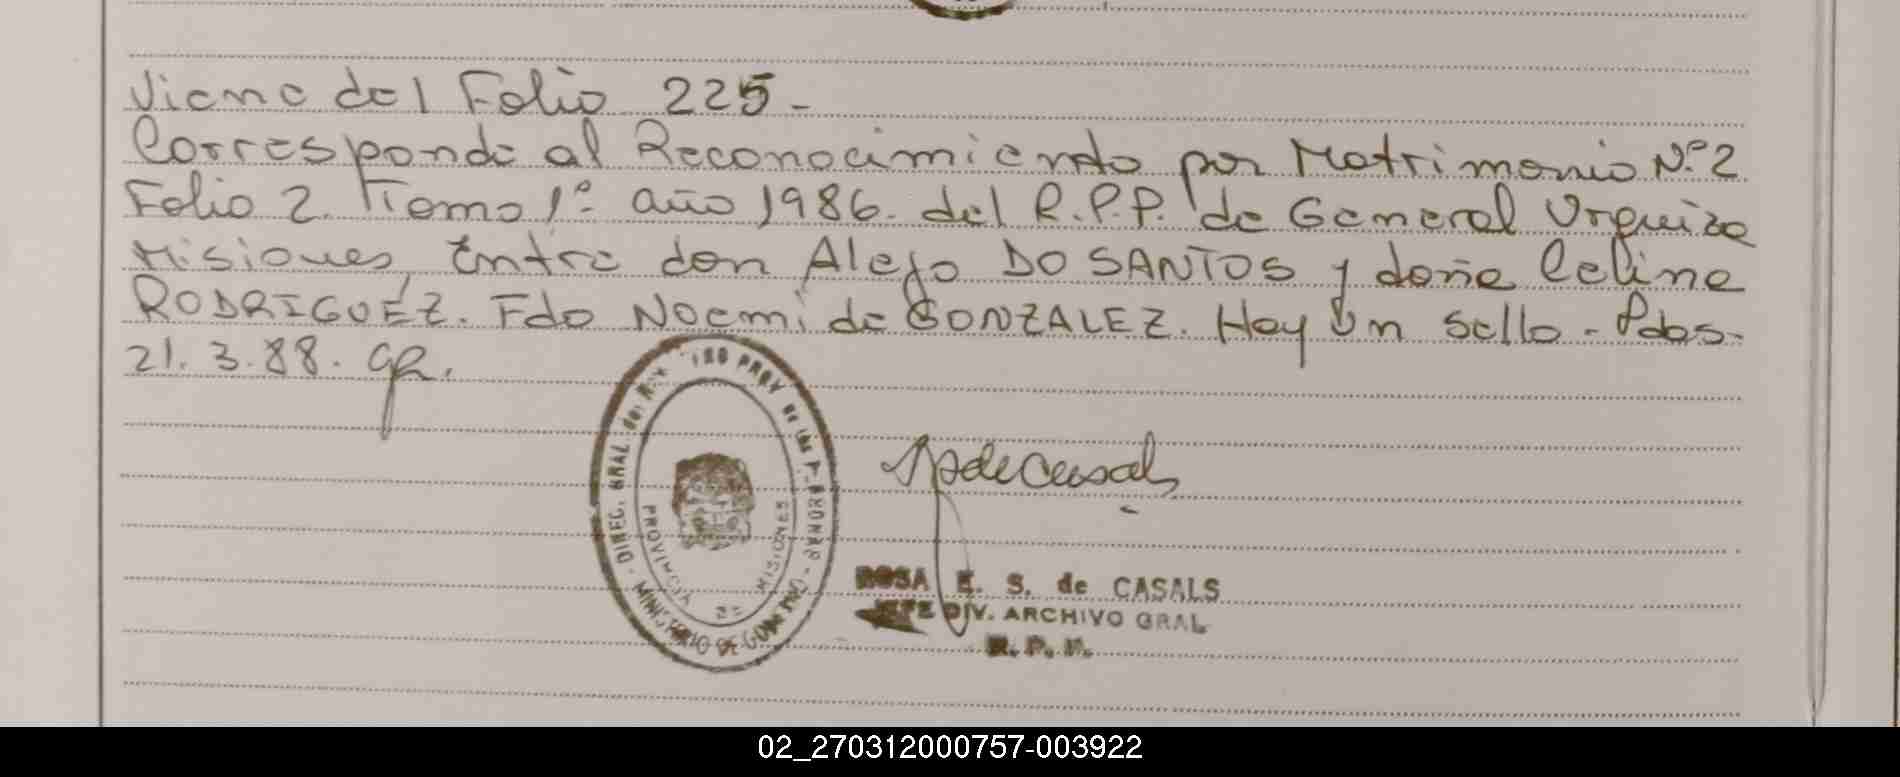 Viene del Folio 225-
Corresponde al Reconocimiento por Matrimonio Nº2
Folio 2. Tomo 1º año 1986. del R.P.P. de General Urquiza
Misiones, Entre don Alejo DO SANTOS y doña Celina
RODRIGUEZ. Fdo Noemi de GONZALEZ. Hay Un sello - Pdas-
21. 3. 88.
DIREC. GRAL del
PROV de las PERSONAS - MINISTERIO DE GOBIERNO -
PROVINCIA DE MISIONES
de Casals
ROSA E. S. de CASALS
JEFE DIV. ARCHIVO GRAL
R. P. P.
02_270312000757-003922